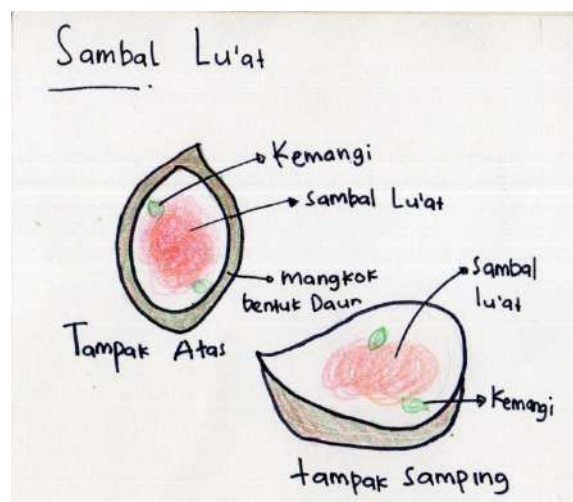 Sambal Lu'at
Kemangi
Sambal Lu'at
mangkok
bentuk Daun
Tampak Atas
Sambal
lu'at
Kemangi
tampak samping